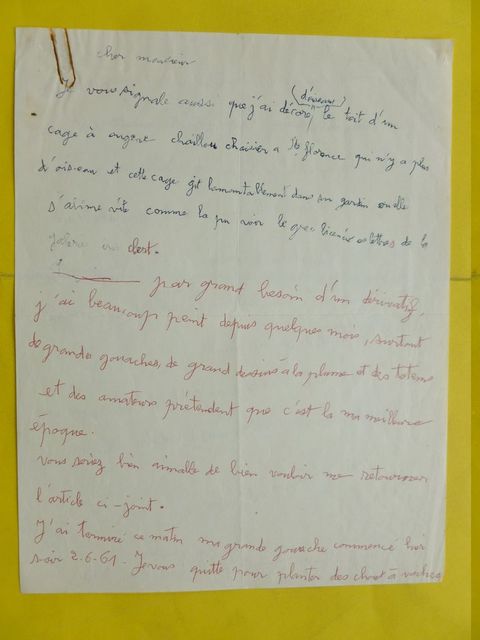 cher monsieur
Je vous signale aussi que j'ai décoré (d'oiseaux) le toit d'un
cage à angora chaillou à Ste florence qui n'y a plus
d'oiseau et cette cage gît lamentablement dans un jardin ou elle
s'abime vite comme l'a pu voir le licencié es lettres de la
par grand besoin d'un dérivatif,
j'ai beaucoup peint depuis quelques mois, surtout
de grandes gouaches, de grand dessins à la plume et des totems
et des amateurs prétendent que c'est là ma meilleure
époque.
vous seriez bien aimable de bien vouloir me retourner
l'article ci-joint.
J'ai terminé ce matin ma grande gouache commencé hier
soir 2.6.61. Je vous quitte pour planter des choux à vaches